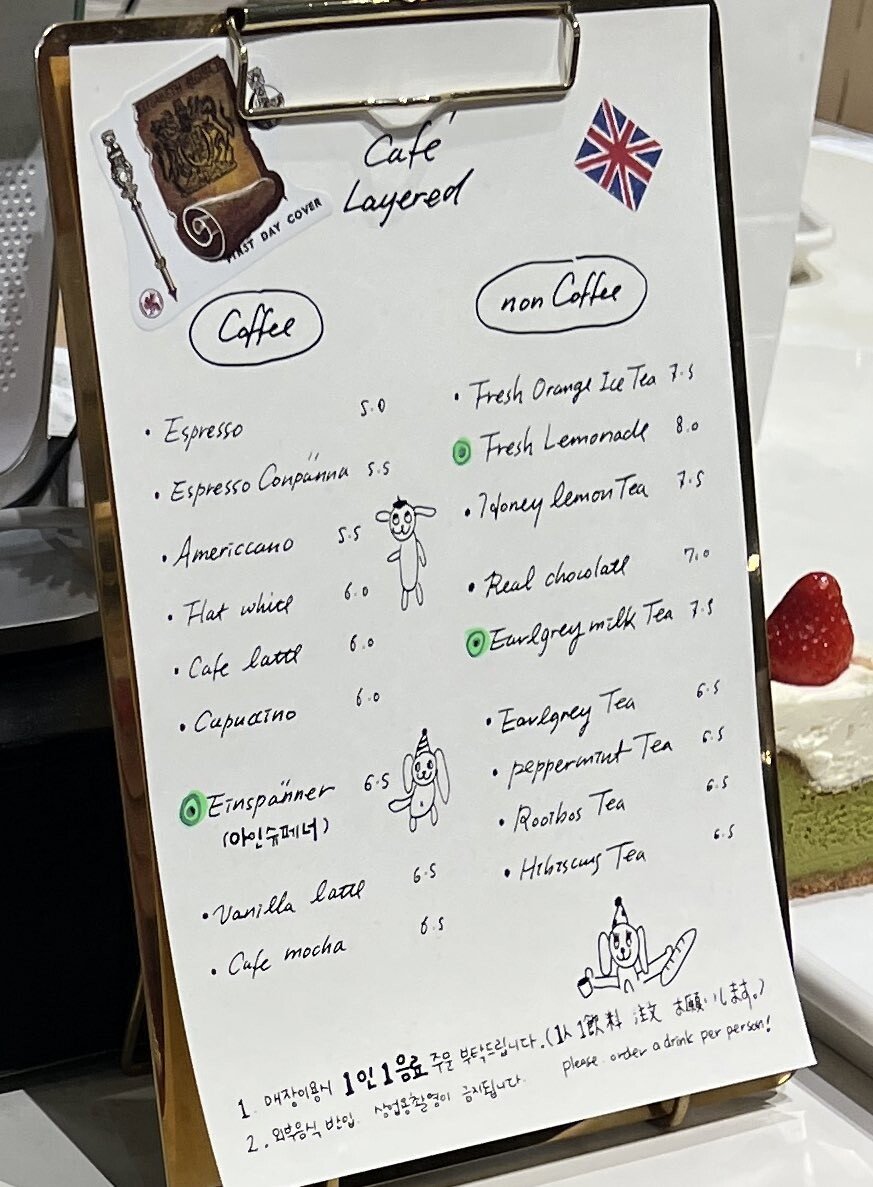 FIRST DAY COVER
Café
Layered
Coffee
• Espresso 5.0
• Espresso Conpänna 5.5
• Americcano 5.5
• Flat white 6.0
• Cafe latte 6.0
• Capuccino 6.0
Einspänner 6.5
(아인슈페너)
• Vanilla latte 6.5
• Cafe mocha 6.5
non Coffee
• Fresh Orange Ice Tea 7.5
Fresh Lemonade 8.0
• Honey lemon Tea 7.5
• Real chocolate 7.0
Earlgrey milk Tea 7.5
• Earlgrey Tea 6.5
• peppermint Tea 6.5
• Rooibos Tea 6.5
• Hibiscus Tea 6.5
1. 매장이용시 1인1음료 주문 부탁드립니다. (1人 1飲料 注文 お願いします。)
please order a drink per person!
2. 외부음식 반입, 상업용촬영이 금지됩니다.